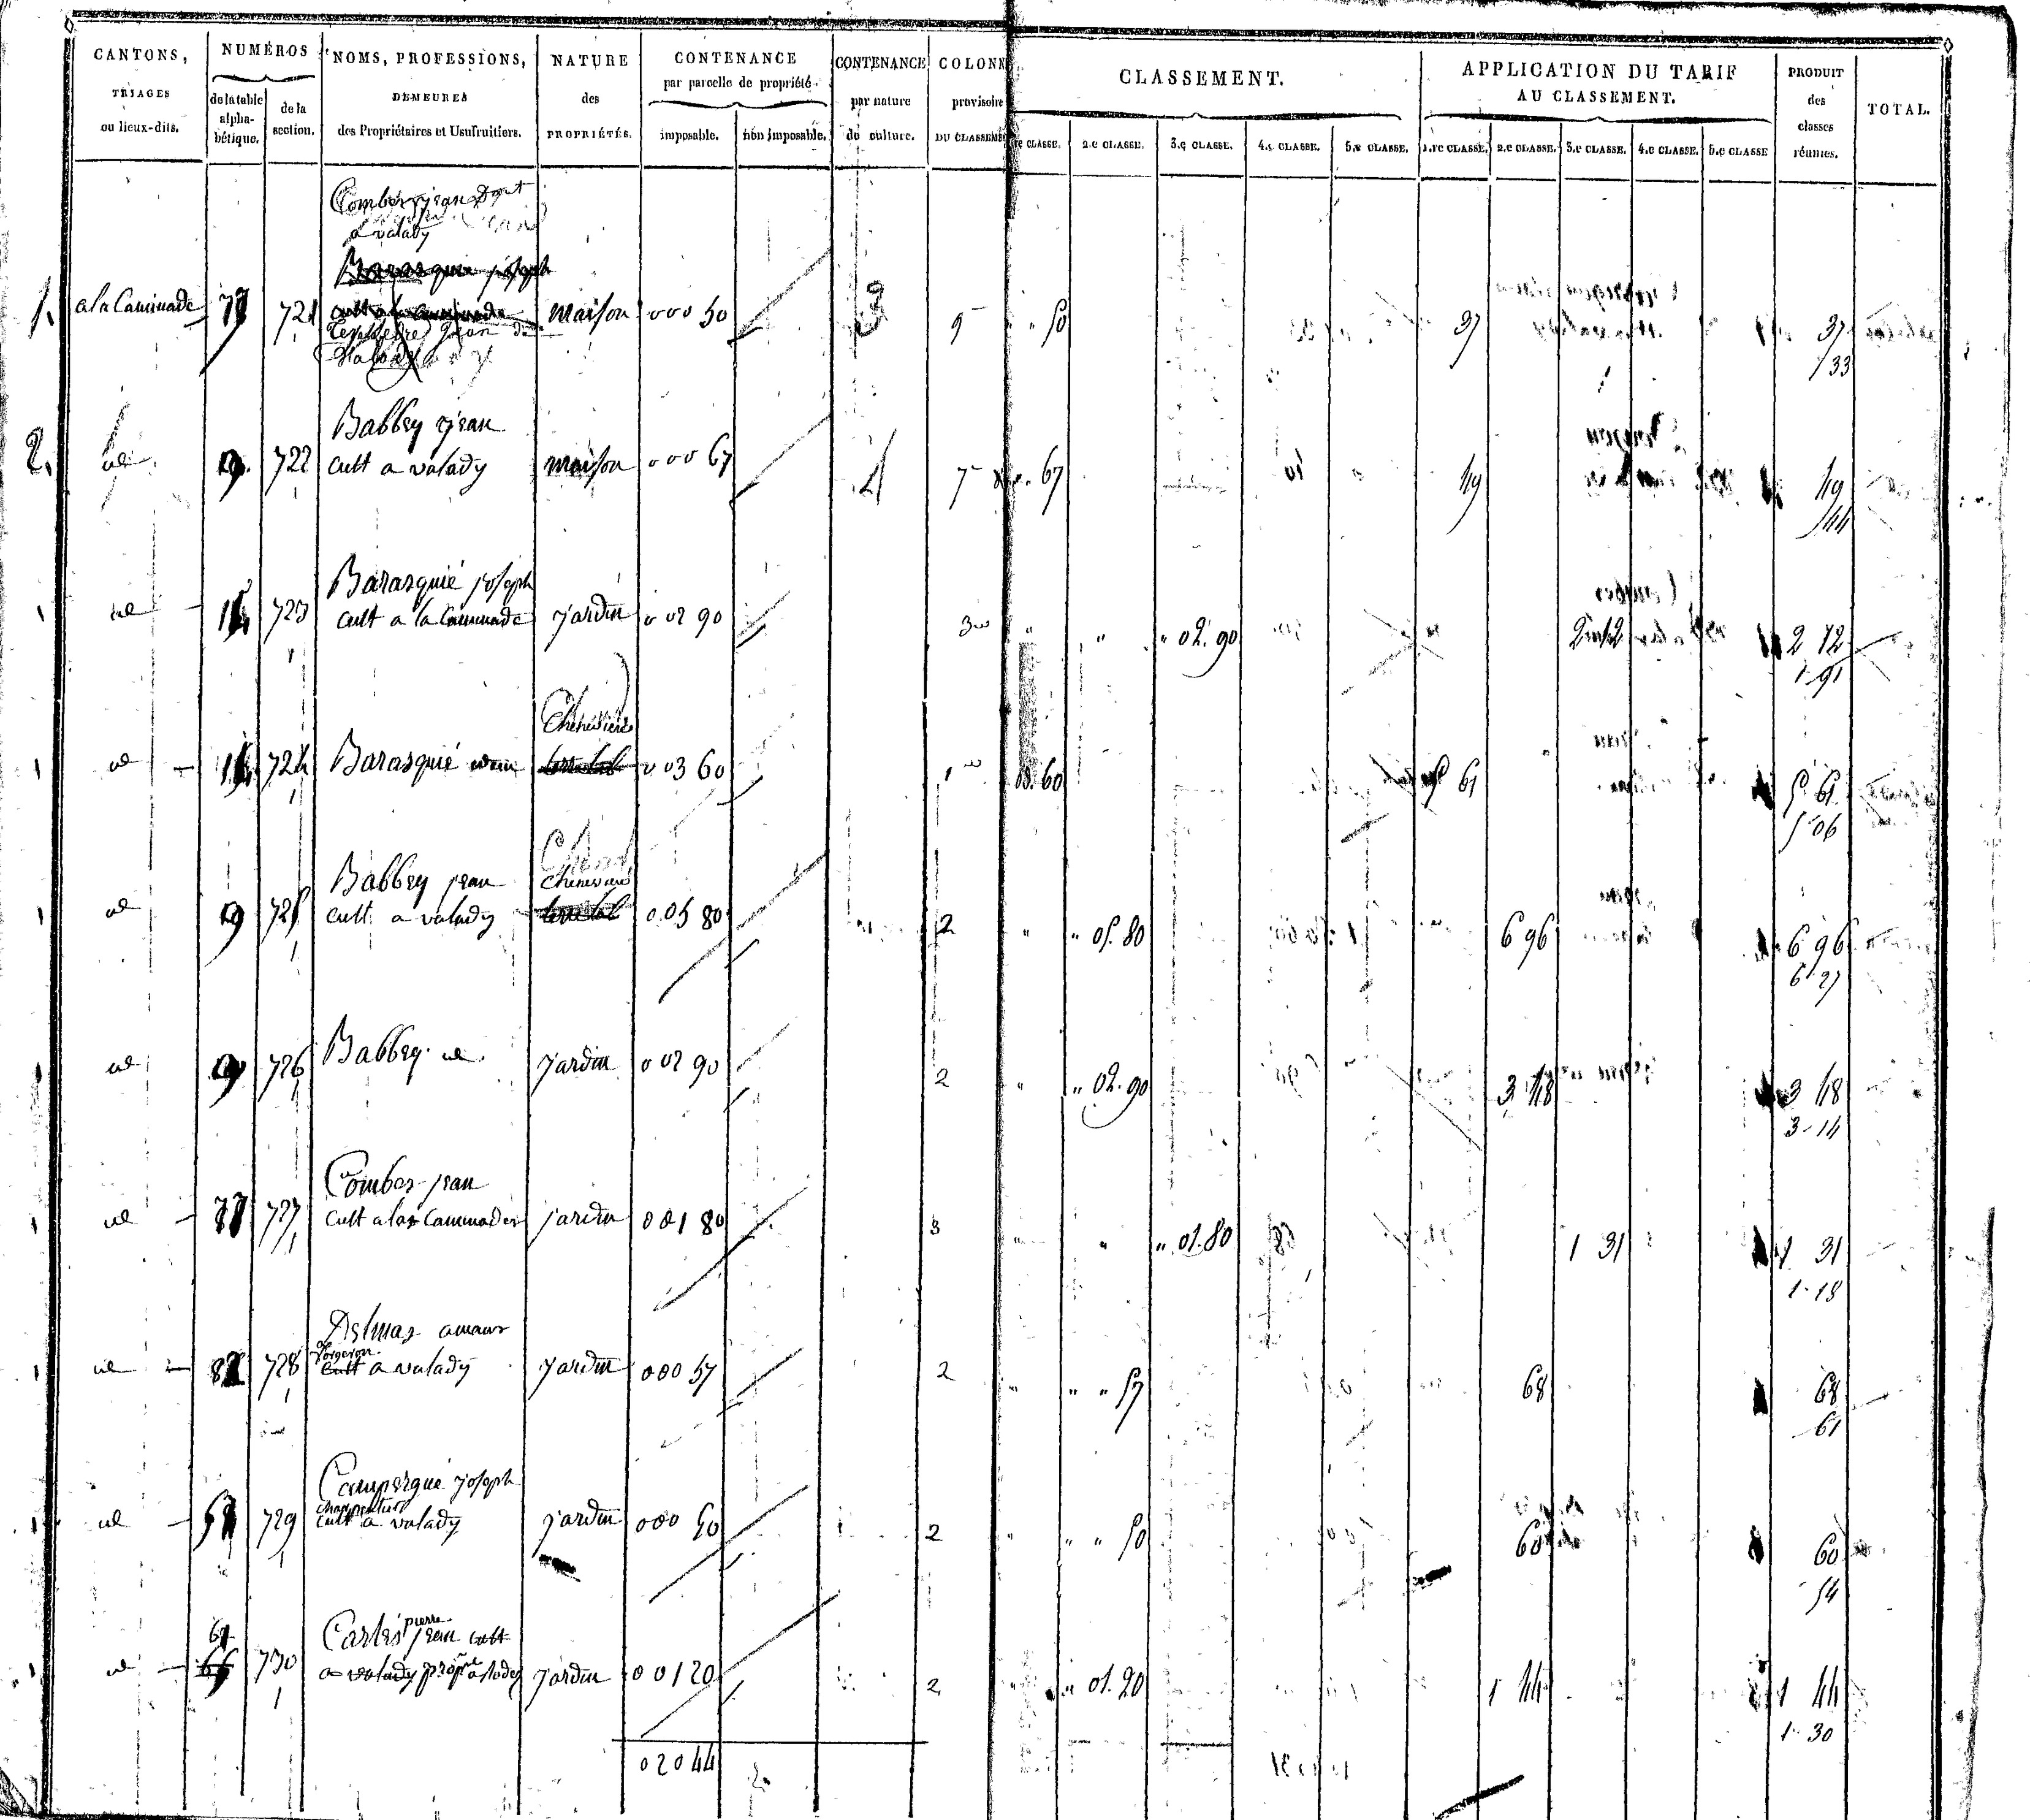 CANTONS, TRIAGES ou lieux-dits. | NUMÉROS de la table alpha-bétique. | de la section. | NOMS, PROFESSIONS, DEMEURES des Propriétaires et Usufruitiers. | NATURE des PROPRIÉTÉS. | CONTENANCE par parcelle de propriété imposable. | non imposable. | CONTENANCE par nature de culture. | COLONN provisoire DU CLASSEME
CLASSEMENT. | re CLASSE. | 2.e CLASSE. | 3.e CLASSE. | 4.e CLASSE. | 5.e CLASSE. | APPLICATION DU TARIF AU CLASSEMENT. | 1.re CLASSE. | 2.e CLASSE. | 3.e CLASSE. | 4.e CLASSE. | 5.e CLASSE | PRODUIT des classes réunies. | TOTAL.
Combes jean
a valady
Barasquié joseph
1. a la Caminade 77 721 cult a la Caminade maison 000 50 3 9 " " 50 37 37
jean
33
Babbey jean
2. id 9 722 cult a valady maison 000 67 4 7 67 49 49
44
Barasquié joseph
id 14 723 cult a la Caminade jardin 0 02 90 3 " " " 02. 90 2 12 2 12
1 91
Cheneviere
id 14 724 Barasquié idem 0 03 60 1 03. 60 5 61 5 61
5 06
Babbey jean Cheneviere
id 9 725 cult a valady 0 05 80 2 " " 05. 80 6 96 6 96
6 27
id 9 726 Babbey id jardin 0 02 90 2 " " 02. 90 3 48 3 48
3 14
Combes jean
id 77 727 cult a las Caminades jardin 0 01 80 3 " " 01. 80 1 31 1 31
1 18
Delmas amans
forgeron
id 82 728 cult a valady jardin 000 57 2 " " " 57 68 68
61
Campergue joseph
charpentier
id 729 cult a valady jardin 000 50 2 " " " 50 60 60
54
61 Carles pierre jean cult
id 66 730 a valady a rodez jardin 0 01 20 2 " " 01. 20 1 44 1 44
1 30
0 20 44